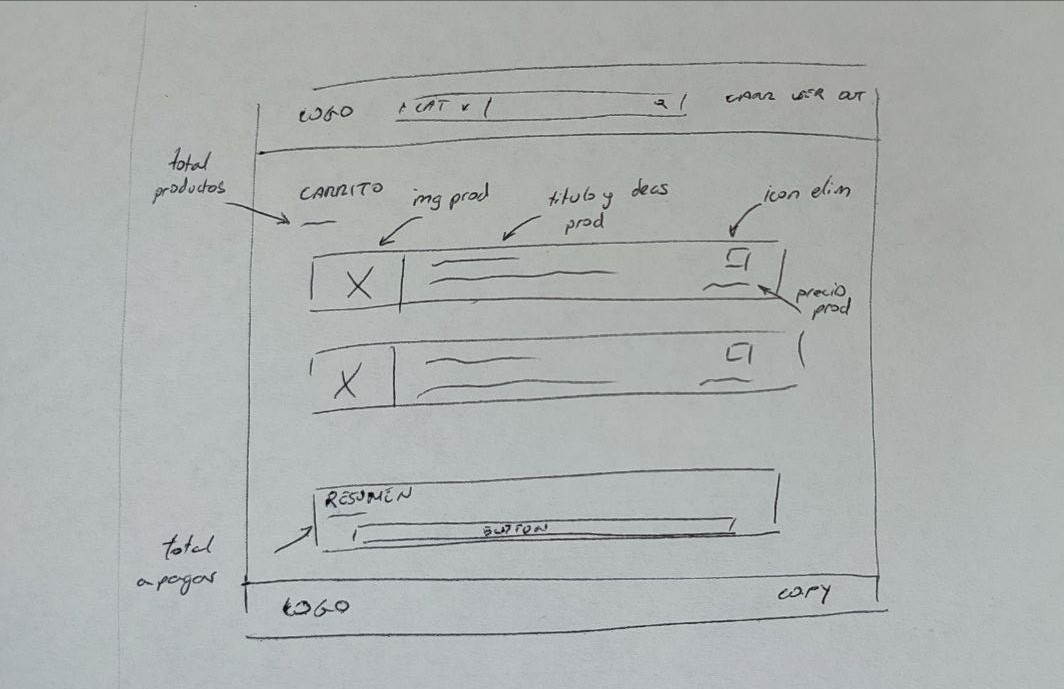 LOGO
CAT
CARR USER OUT
total
productos
CARRITO
img prod
titulo y decs
prod
icon elim
X
precio
prod
X
RESUMEN
BUTTON
total
a pagar
LOGO
COPY